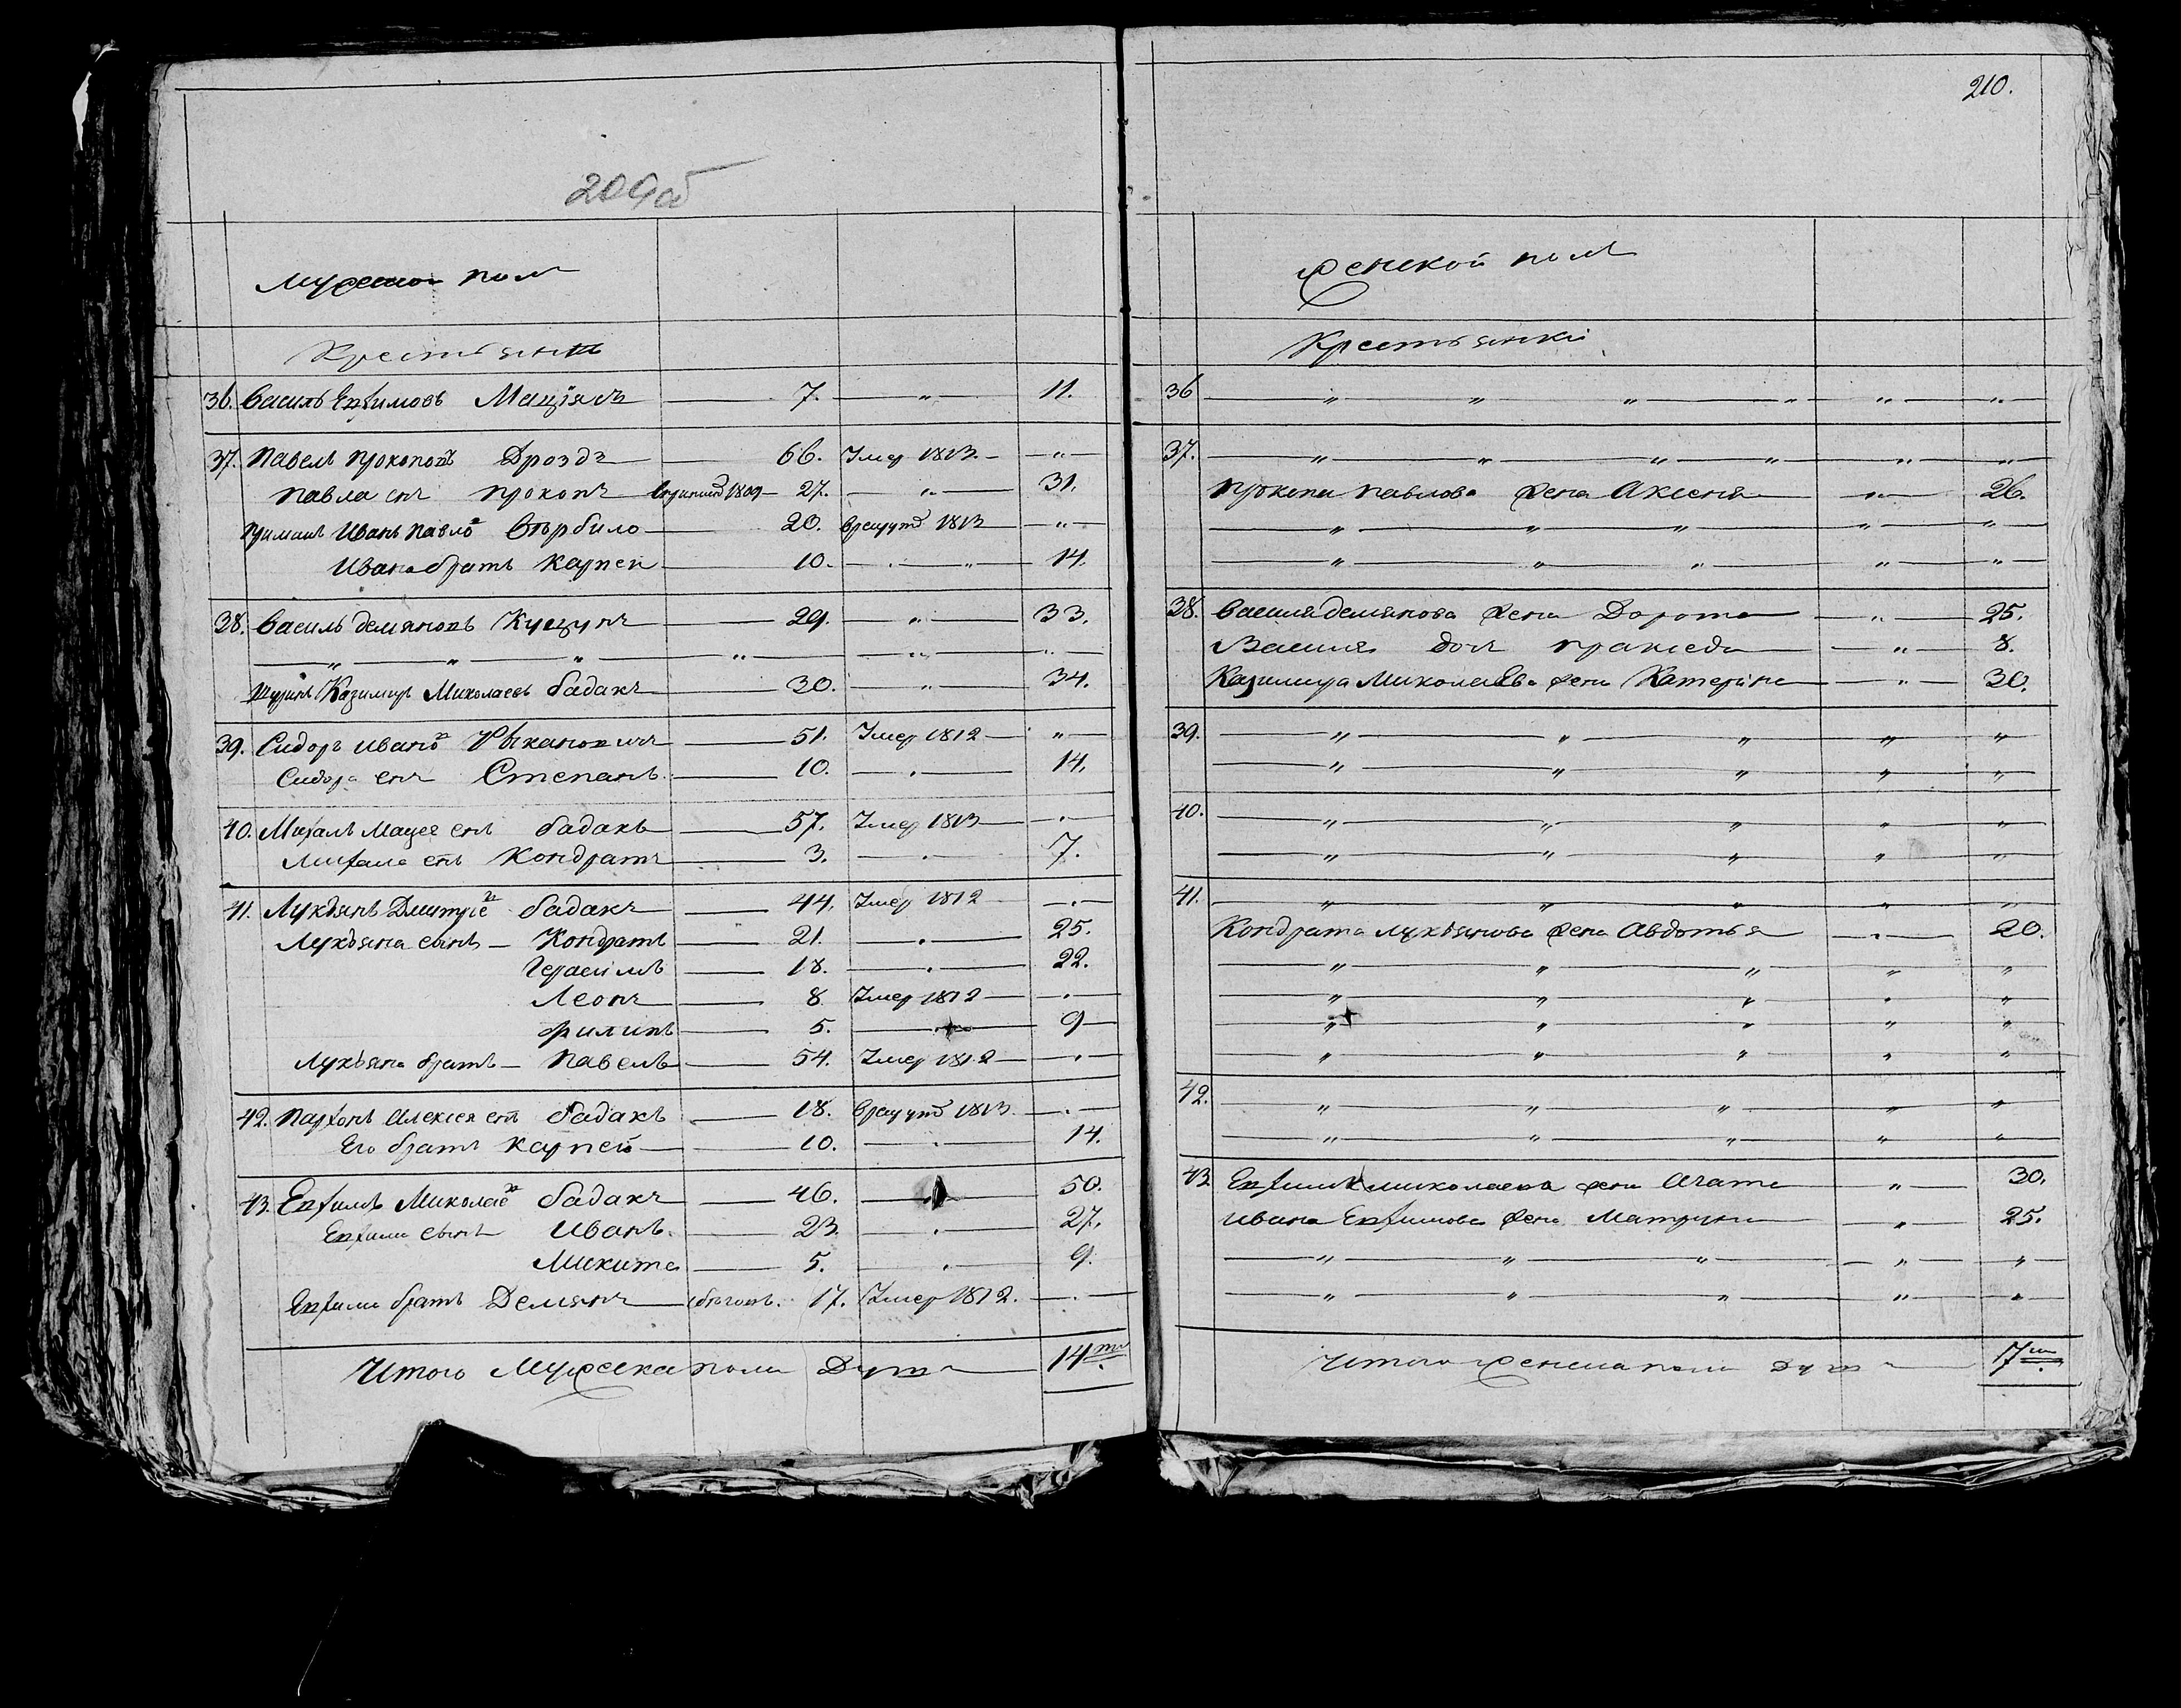 209об
Мужеской пол
Крестьяне
36. Василь Ехимовъ Мацiясъ 7. " 11.
37. Павелъ Прокоповъ Дроздъ 66. Умер 1813. "
Павла снъ Прокопъ 1809 27. " 31.
Примакъ Иванъ Павло в Вырбило 20. Врекруты 1813 "
Ивана братъ Карпей 10. " 14.
38. Василь Демяновъ Куцунъ 29. " 33.
" " " " " "
Казимиръ Миколаевъ Бадакъ 30. " 34.
39. Сидоръ Ивано в 51. Умер 1812 "
Сидора снъ Степанъ. 10. " 14.
40. Михалъ Мацея снъ Бадакъ 57. Умер 1813 "
Михала снъ Кондратъ 3. " 7.
41. Лукьянъ Дмитрiе в Бадакъ 44. Умер 1812 "
Лукьяна сынъ Кондратъ 21. " 25.
Герасимъ 18. " 22.
Леонъ 8. Умер 1812 "
Филипъ 5. " 9
Лукьяна братъ Павелъ 54. Умер 1812 "
42. Пархонъ Алексея снъ Бадакъ 18. Врекруты 1813. "
Его братъ Карпей 10. " 14.
43. Ехимъ Миколае в Бадакъ 46. " 50.
Ехима сынъ Иванъ. 23. " 27.
Микита 5. " 9.
Ехима братъ Демянъ 17. Умер 1812. "
Итого Мужеска пола Душъ 14ть
210.
Женской полъ
Крестьянки
36 " " " " " "
37. " " " " " "
Прокопа Павлова жена Аксеня " 26.
" " " " "
" " " " "
38. Василя Демянова жена Дорота " 25.
Василя доч Пракседа " 8.
Казимира Миколаева жена Катерина " 30.
39. " " " " "
" " " " "
40. " " " " "
" " " " "
41. " " " " "
Кондрата Лукьянова жена Авдотья " 20.
" " " " "
" " " " "
" " " " "
" " " " "
42. " " " " "
" " " " "
43 Ехима Миколаева жена Агата " 30.
Ивана Ехимова жена Матруна " 25.
" " " " "
" " " " "
Итого женска пола душъ 7мь